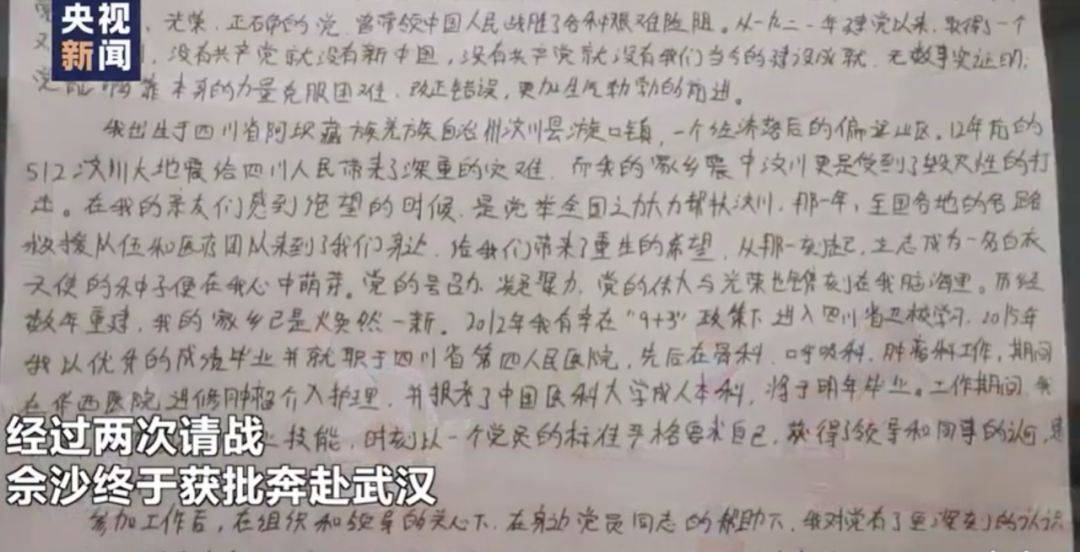 央视新闻
、光荣、正确的党，曾带领中国人民战胜了各种艰难险阻。从一九二一年建党以来，取得了一个
又，没有共产党就没有新中国，没有共产党就没有我们当今的建设成就，无数事实证明：
党能够靠本身的力量克服困难，改正错误，更加生气勃勃的前进。
我出生于四川省阿坝藏族羌族自治州汶川县漩口镇，一个经济落后的偏远山区。12年前的
512汶川大地震给四川人民带来了深重的灾难，而我的家乡震中汶川更是受到了毁灭性的打
击。在我的亲友们感到绝望的时候，是党举全国之力大力帮扶汶川，那一年，全国各地的各路
救援队伍和医疗团队来到了我们身边，给我们带来了重生的希望，从那一刻起，立志成为一名白衣
天使的种子便在我心中萌芽。党的号召力、凝聚力，党的伟大与光荣也镌刻在我脑海里。历经
数年重建，我的家乡已是火焕然一新。2012年我有幸在“9+3”政策下进入四川省卫校学习，2015年
我以优异的成绩毕业并就职于四川省第四人民医院，先后在骨科、呼吸科、肿瘤科工作，期间
在华西医院进修肿瘤介入护理，并报考了中国医科大学成人本科，将于明年毕业。工作期间，我
技能，时刻以一个党员的标准严格要求自己，获得了领导和同事的认可，
经过两次请战
佘沙终于获批奔赴武汉
参加工作后，在组织和领导的关心下，在身边党员同志的帮助下，我对党有了更深刻的认识